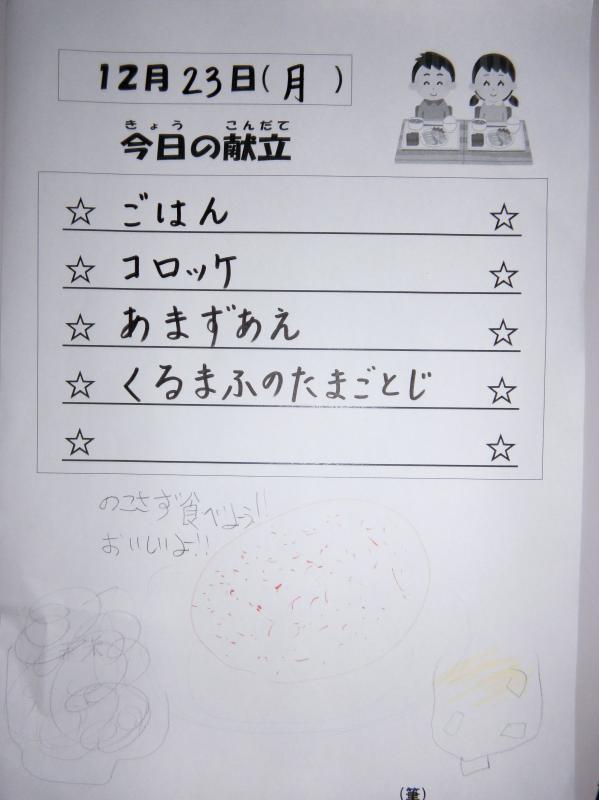 12月23日(月)
きょう こんだて
今日の献立
☆ ごはん ☆
☆ コロッケ ☆
☆ あまずあえ ☆
☆ くるまふのたまごとじ ☆
☆ ☆
のこさず食べよう!!
おいしいよ!!
(筆)